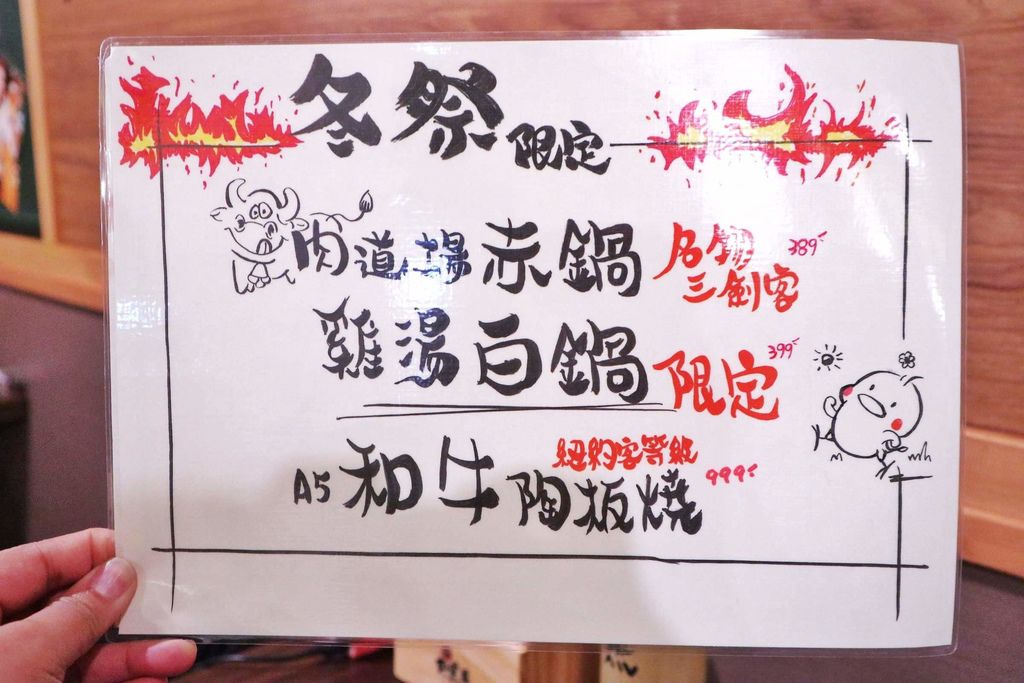 冬祭限定
肉道場赤鍋 名物三劍客 389
雞湯白鍋 限定 399
A5和牛陶板燒 紐約客等級 999